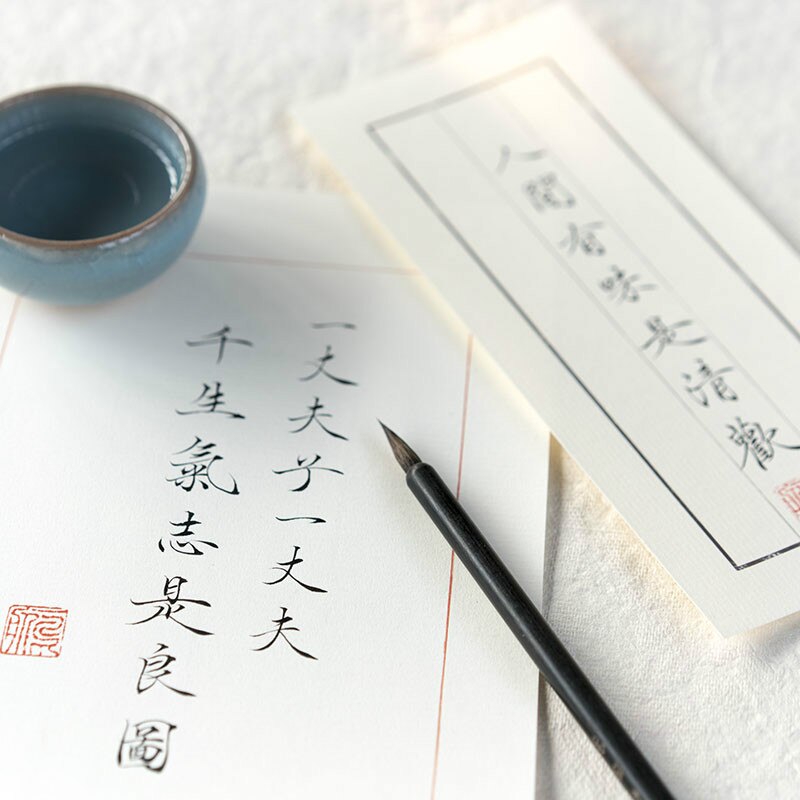 一丈夫子一丈夫
千生氣志是良圖
人間有味是清歡